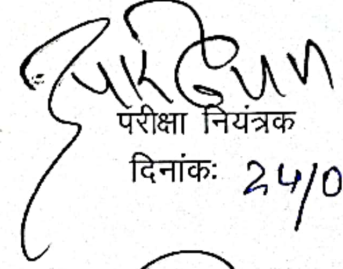 परीक्षा नियंत्रक
दिनांकः 24/0